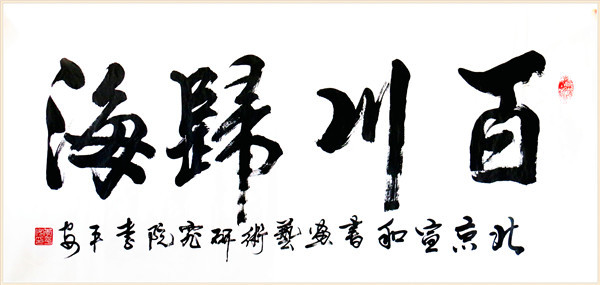 百川歸海
北京宣和書畫藝術研究院李平安